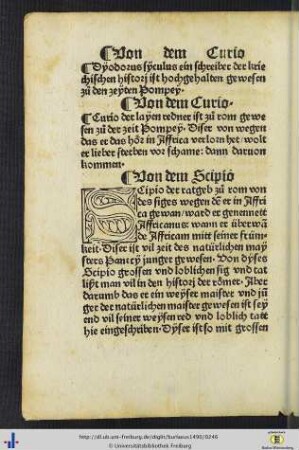 ¶Von dem Curio
¶Dyodorus syculus ein schreiber der krie
chischen history ist hochgehalten gewesen
zů den zeyten Pompey.
¶Von dem Curio.
¶Curio der layen redner ist zů rom gewe
sen zů der zeit Pompey. Diser von wegen
das er das hör in Affrica verlorn het/ wolt
er lieber sterben vor schame: dann daruon
kommen.
¶Von dem Scipio
Scipio der ratgeb zů rom von
des siges wegen dē er in Affri
ca gewan/ ward er genennett
Affricanus: wann er überwā
de Affricam mitt seiner früm
keit. Diser ist vil zeit des natürlichen may
sters junger gewesen. Von dyses
Scipio grossen vnd loblichen sig vnd tat
lißt man vil in den history der römer. Aber
darumb das er ein weyser maister vnd jū
ger der natürlichen maister gewesen ist sey
end vil seiner weysen red vnd loblich tatt
hie eingeschriben. Dyser ist so mit grossen
http://dl.ub.uni-freiburg.de/diglit/burlaeus1490/0246
© Universitätsbibliothek Freiburg